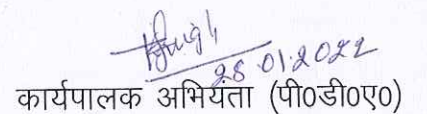 28.01.2022
कार्यपालक अभियंता (पी0डी0ए0)